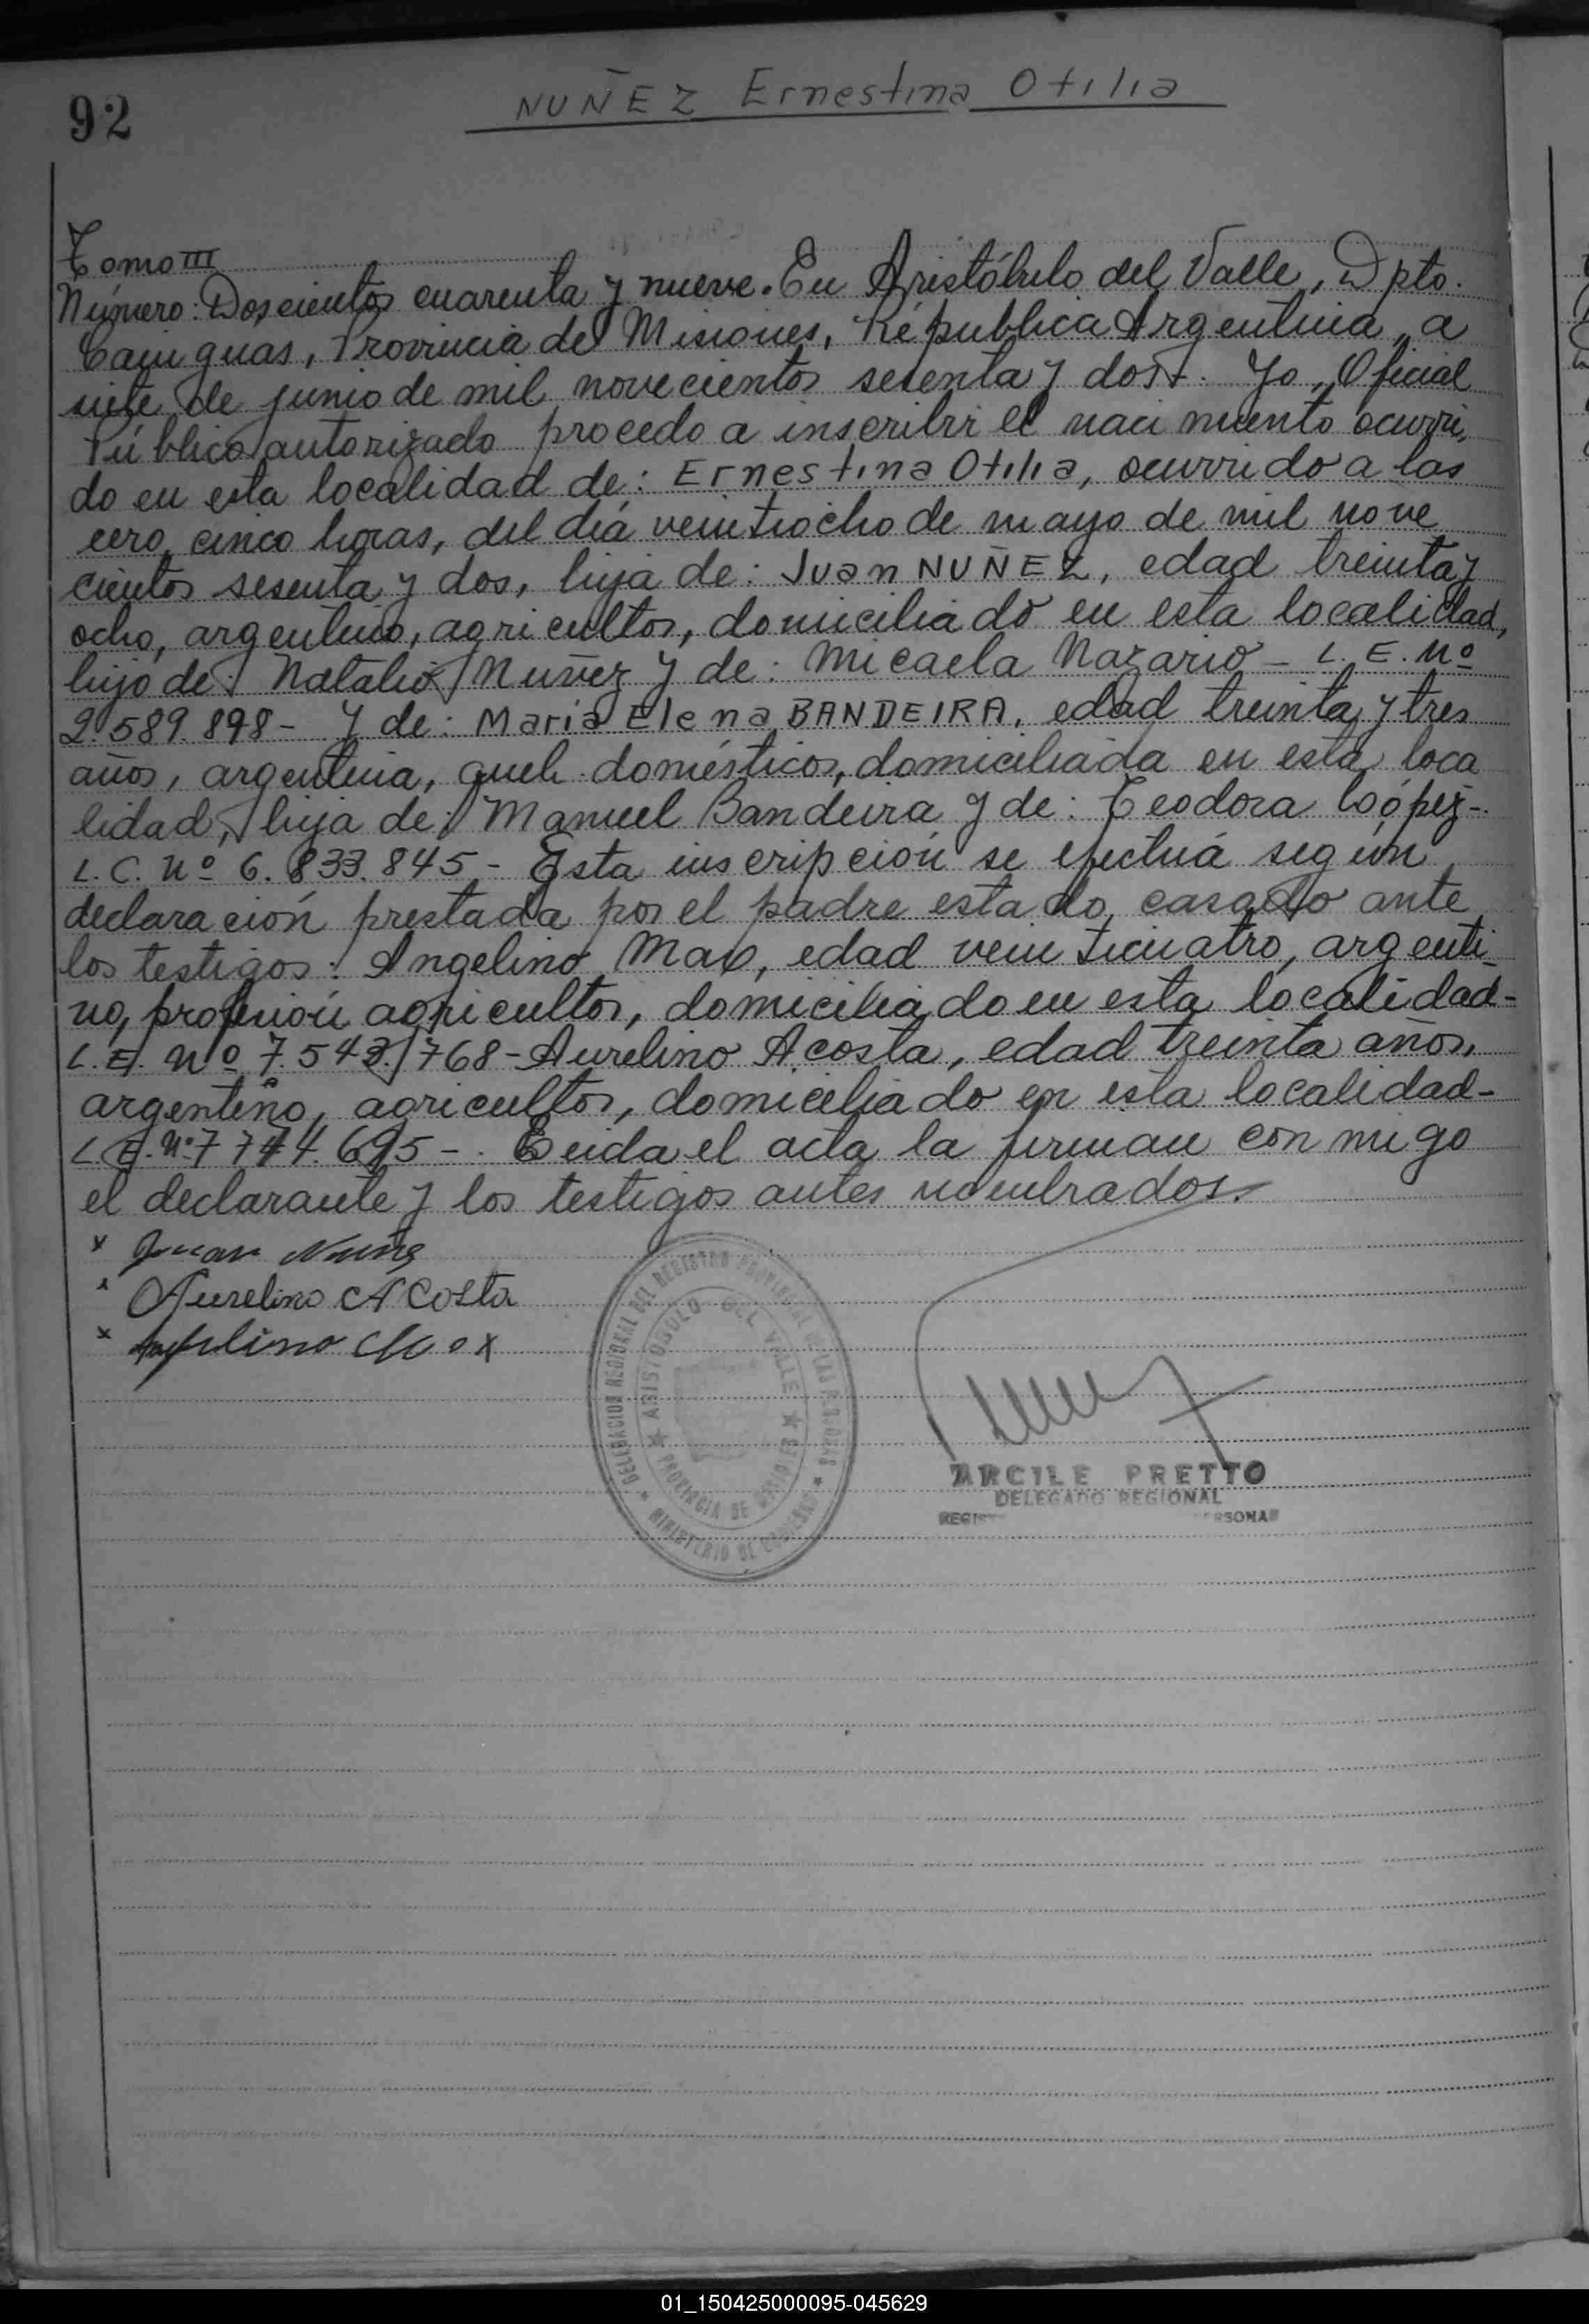 92
NUÑEZ Ernestina Otilia
Tomo III
Número: Doscientos cuarenta y nueve. En Aristóbulo del Valle, Dpto.
Cainguas, Provincia de Misiones, República Argentina, a
siete de junio de mil novecientos sesenta y dos. Yo, Oficial
Público autorizado procedo a inscribir el nacimiento ocurri
do en esta localidad de: Ernestina Otilia, ocurrido a las
cero cinco horas, del día veintiocho de mayo de mil nove
cientos sesenta y dos, hija de: Juan NUÑEZ, edad treinta y
ocho, argentino, agricultor, domiciliado en esta localidad,
hijo de: Natalio Nuñez y de: Micaela Nazario - L. E. Nº
2.589.898- Y de: Maria Elena BANDEIRA, edad treinta y tres
años, argentina, queh. domésticos, domiciliada en esta loca
lidad, hija de: Manuel Bandeira y de: Teodora López-
L. C. Nº 6.833.845- Esta inscripción se efectuá según
declaración prestada por el padre estado casado ante
los testigos: Angelino Max, edad veinticuatro, argenti
no, profesión agricultor, domiciliado en esta localidad-
L. E. Nº 7.543.768- Aurelino Acosta, edad treinta años,
argentino, agricultor, domiciliado en esta localidad-
L. E. Nº 7 774.695-. Leida el acta la firman con migo
el declarante y los testigos antes nombrados.
x Juan Nuñes
x Aurelino ACosta
x Angelino Max
DELEGACION REGIONAL DEL REGISTRO PROVINCIAL DE LAS PERSONAS
ARISTOBULO DEL VALLE
PROVINCIA DE MISIONES
MINISTERIO DE GOBIERNO
ARCILE PRETTO
DELEGADO REGIONAL
01_150425000095-045629